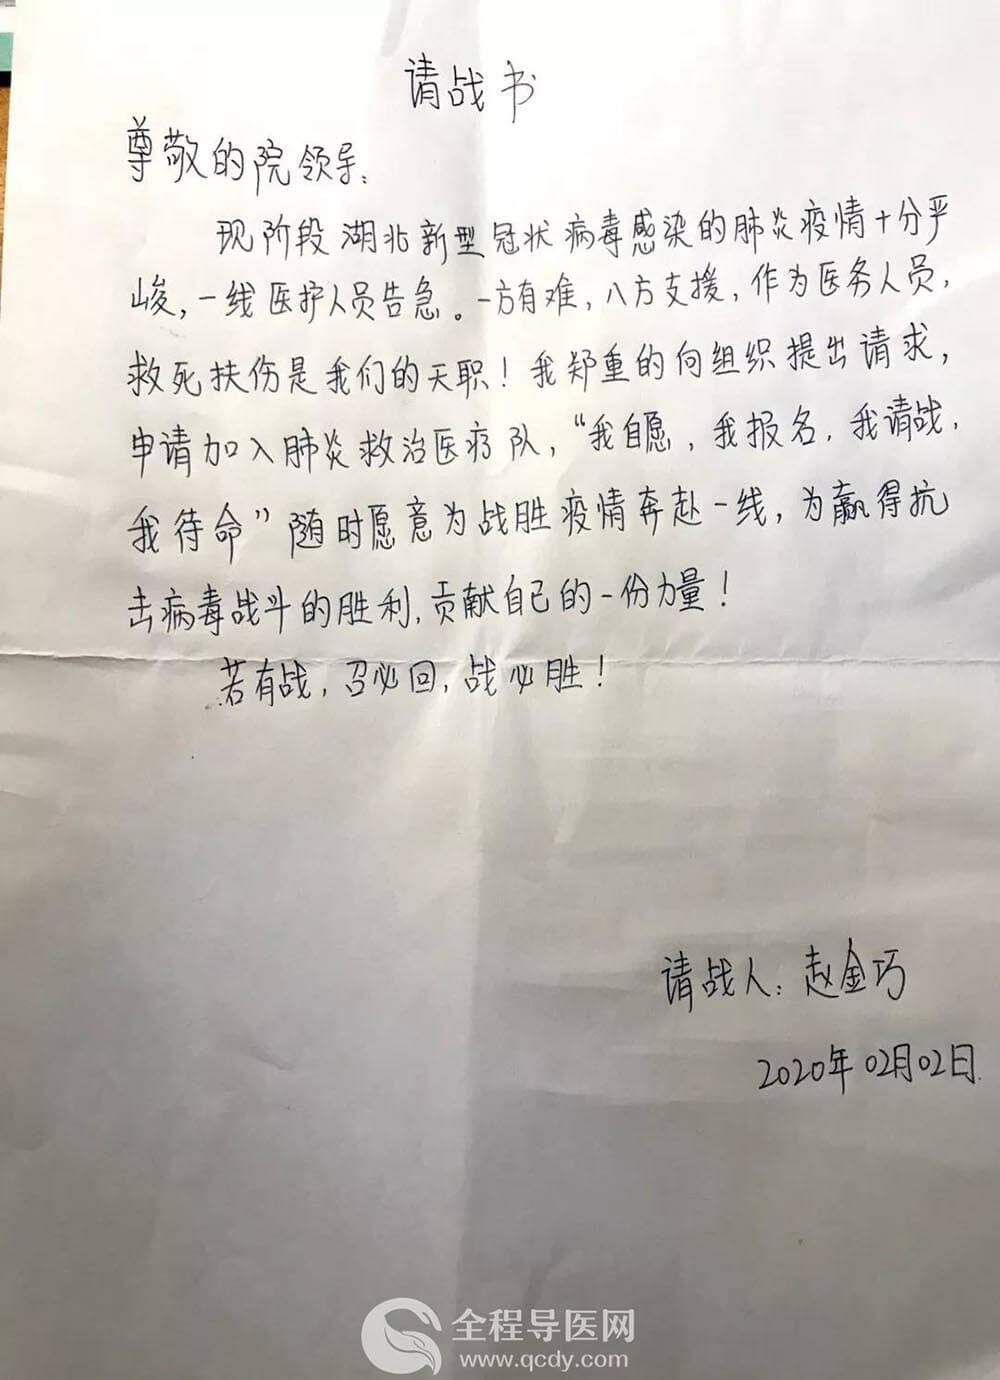 请战书
尊敬的院领导：
现阶段湖北新型冠状病毒感染的肺炎疫情十分严
峻，一线医护人员告急。一方有难，八方支援，作为医务人员，
救死扶伤是我们的天职！我郑重的向组织提出请求，
申请加入肺炎救治医疗队，“我自愿，我报名，我请战，
我待命”随时愿意为战胜疫情奔赴一线，为赢得抗
击病毒战斗的胜利，贡献自己的一份力量！
若有战，召必回，战必胜！
请战人：赵金巧
2020年02月02日.
全程导医网
www.qcdy.com